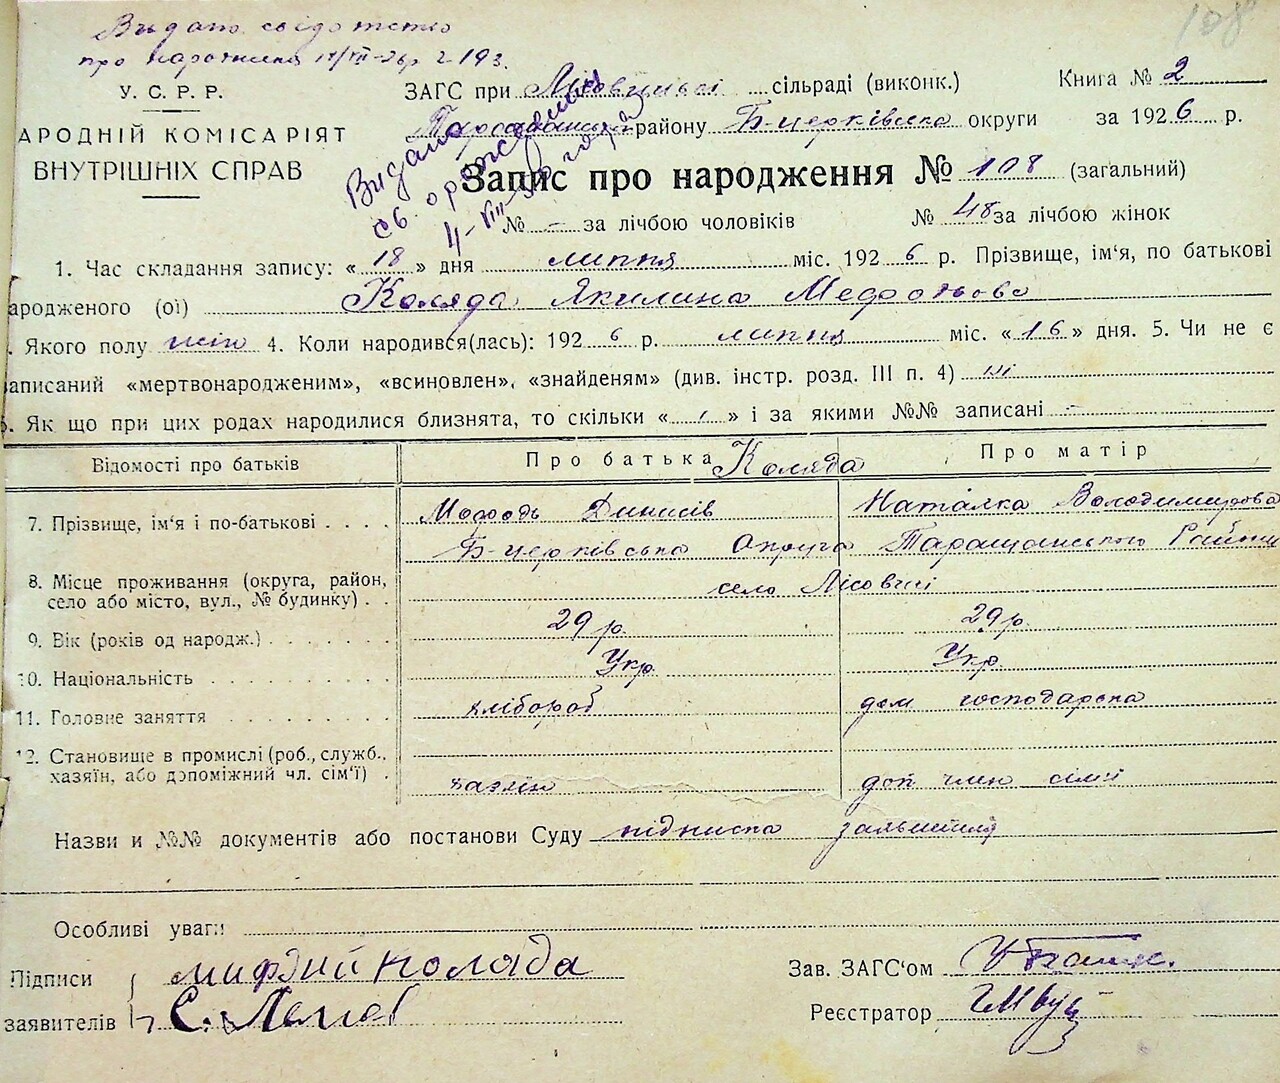 108
Видано свідотство
про народження 17/VII-26р
У. С. Р. Р.
АРОДНІЙ КОМІСАРІЯТ
ВНУТРІШНІХ СПРАВ
ЗАГС при сільраді (виконк.)
Книга № 2
району Б-церківська округи
за 1926 р.
Видано
св. о рожд
4-VIII-
Запис про народження № 108 (загальний)
№ - за лічбою чоловіків № 48 за лічбою жінок
1. Час складання запису: «18» дня липня міс. 1926 р. Прізвище, ім'я, по батькові
ародженого (ої) Коляда Якилина Мефодьова
. Якого полу жін 4. Коли народився(лась): 1926 р. липня міс. «16» дня. 5. Чи не є
аписаний «мертвонародженим», «всиновлен», «знайденям» (див. інстр. розд. III п. 4) ні
6. Як що при цих родах народилися близнята, то скільки « » і за якими №№ записані -
Відомості про батьків Про батька Коляда Про матір
7. Прізвище, ім'я і по-батькові Мефодь Динисів Наталка Володимирова
Б-церківська Округа Таращанського Району
8. Місце проживання (округа, район,
село або місто, вул., № будинку) село Лісовичі
9. Вік (років од народж.) 29 р. 29 р.
10. Національність Укр. Укр.
11. Головне заняття хлібороб дом господарска
12. Становище в промислі (роб., служб.,
хазяїн, або допоміжний чл. сім'ї) хазяїн доп член сімї
Назви и №№ документів або постанови Суду підписка
Особливі уваги
Підписи Мифдий Коляда
заявителів С.
Зав. ЗАГС'ом
Реєстратор